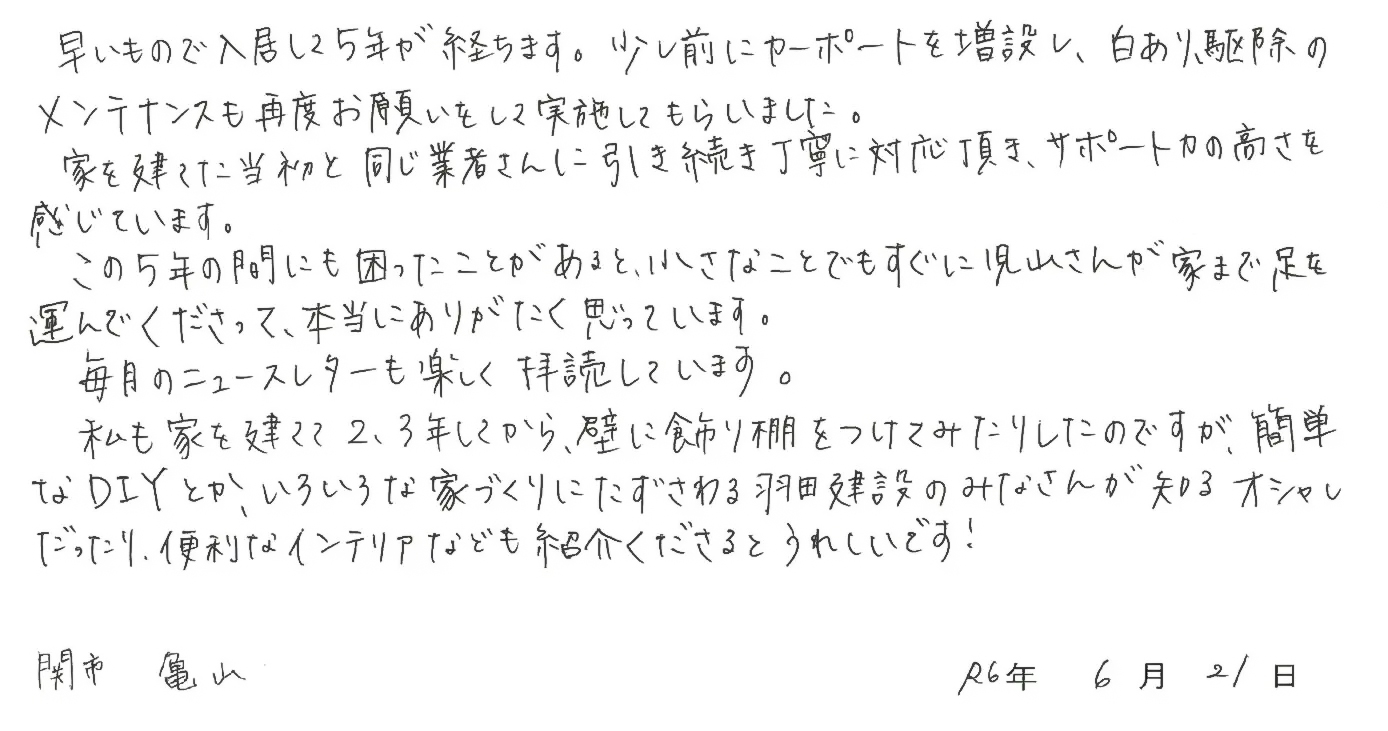 早いもので入居して5年が経ちます。少し前にカーポートを増設し、白あり駆除の
メンテナンスも再度お願いをして実施してもらいました。
家を建てた当初と同じ業者さんに引き続き丁寧に対応頂き、サポート力の高さを
感じています。
この5年の間にも困ったことがあると、小さなことでもすぐに児山さんが家まで足を
運んでくださって、本当にありがたく思っています。
毎月のニュースレターも楽しく拝読しています。
私も家を建てて2、3年してから、壁に飾り棚をつけてみたりしたのですが、簡単
なDIYとか、いろいろな家づくりにたずさわる羽田建設のみなさんが知るオシャレ
だったり、便利なインテリアなども紹介くださるとうれしいです!
関市 亀山
R6年 6月 21日